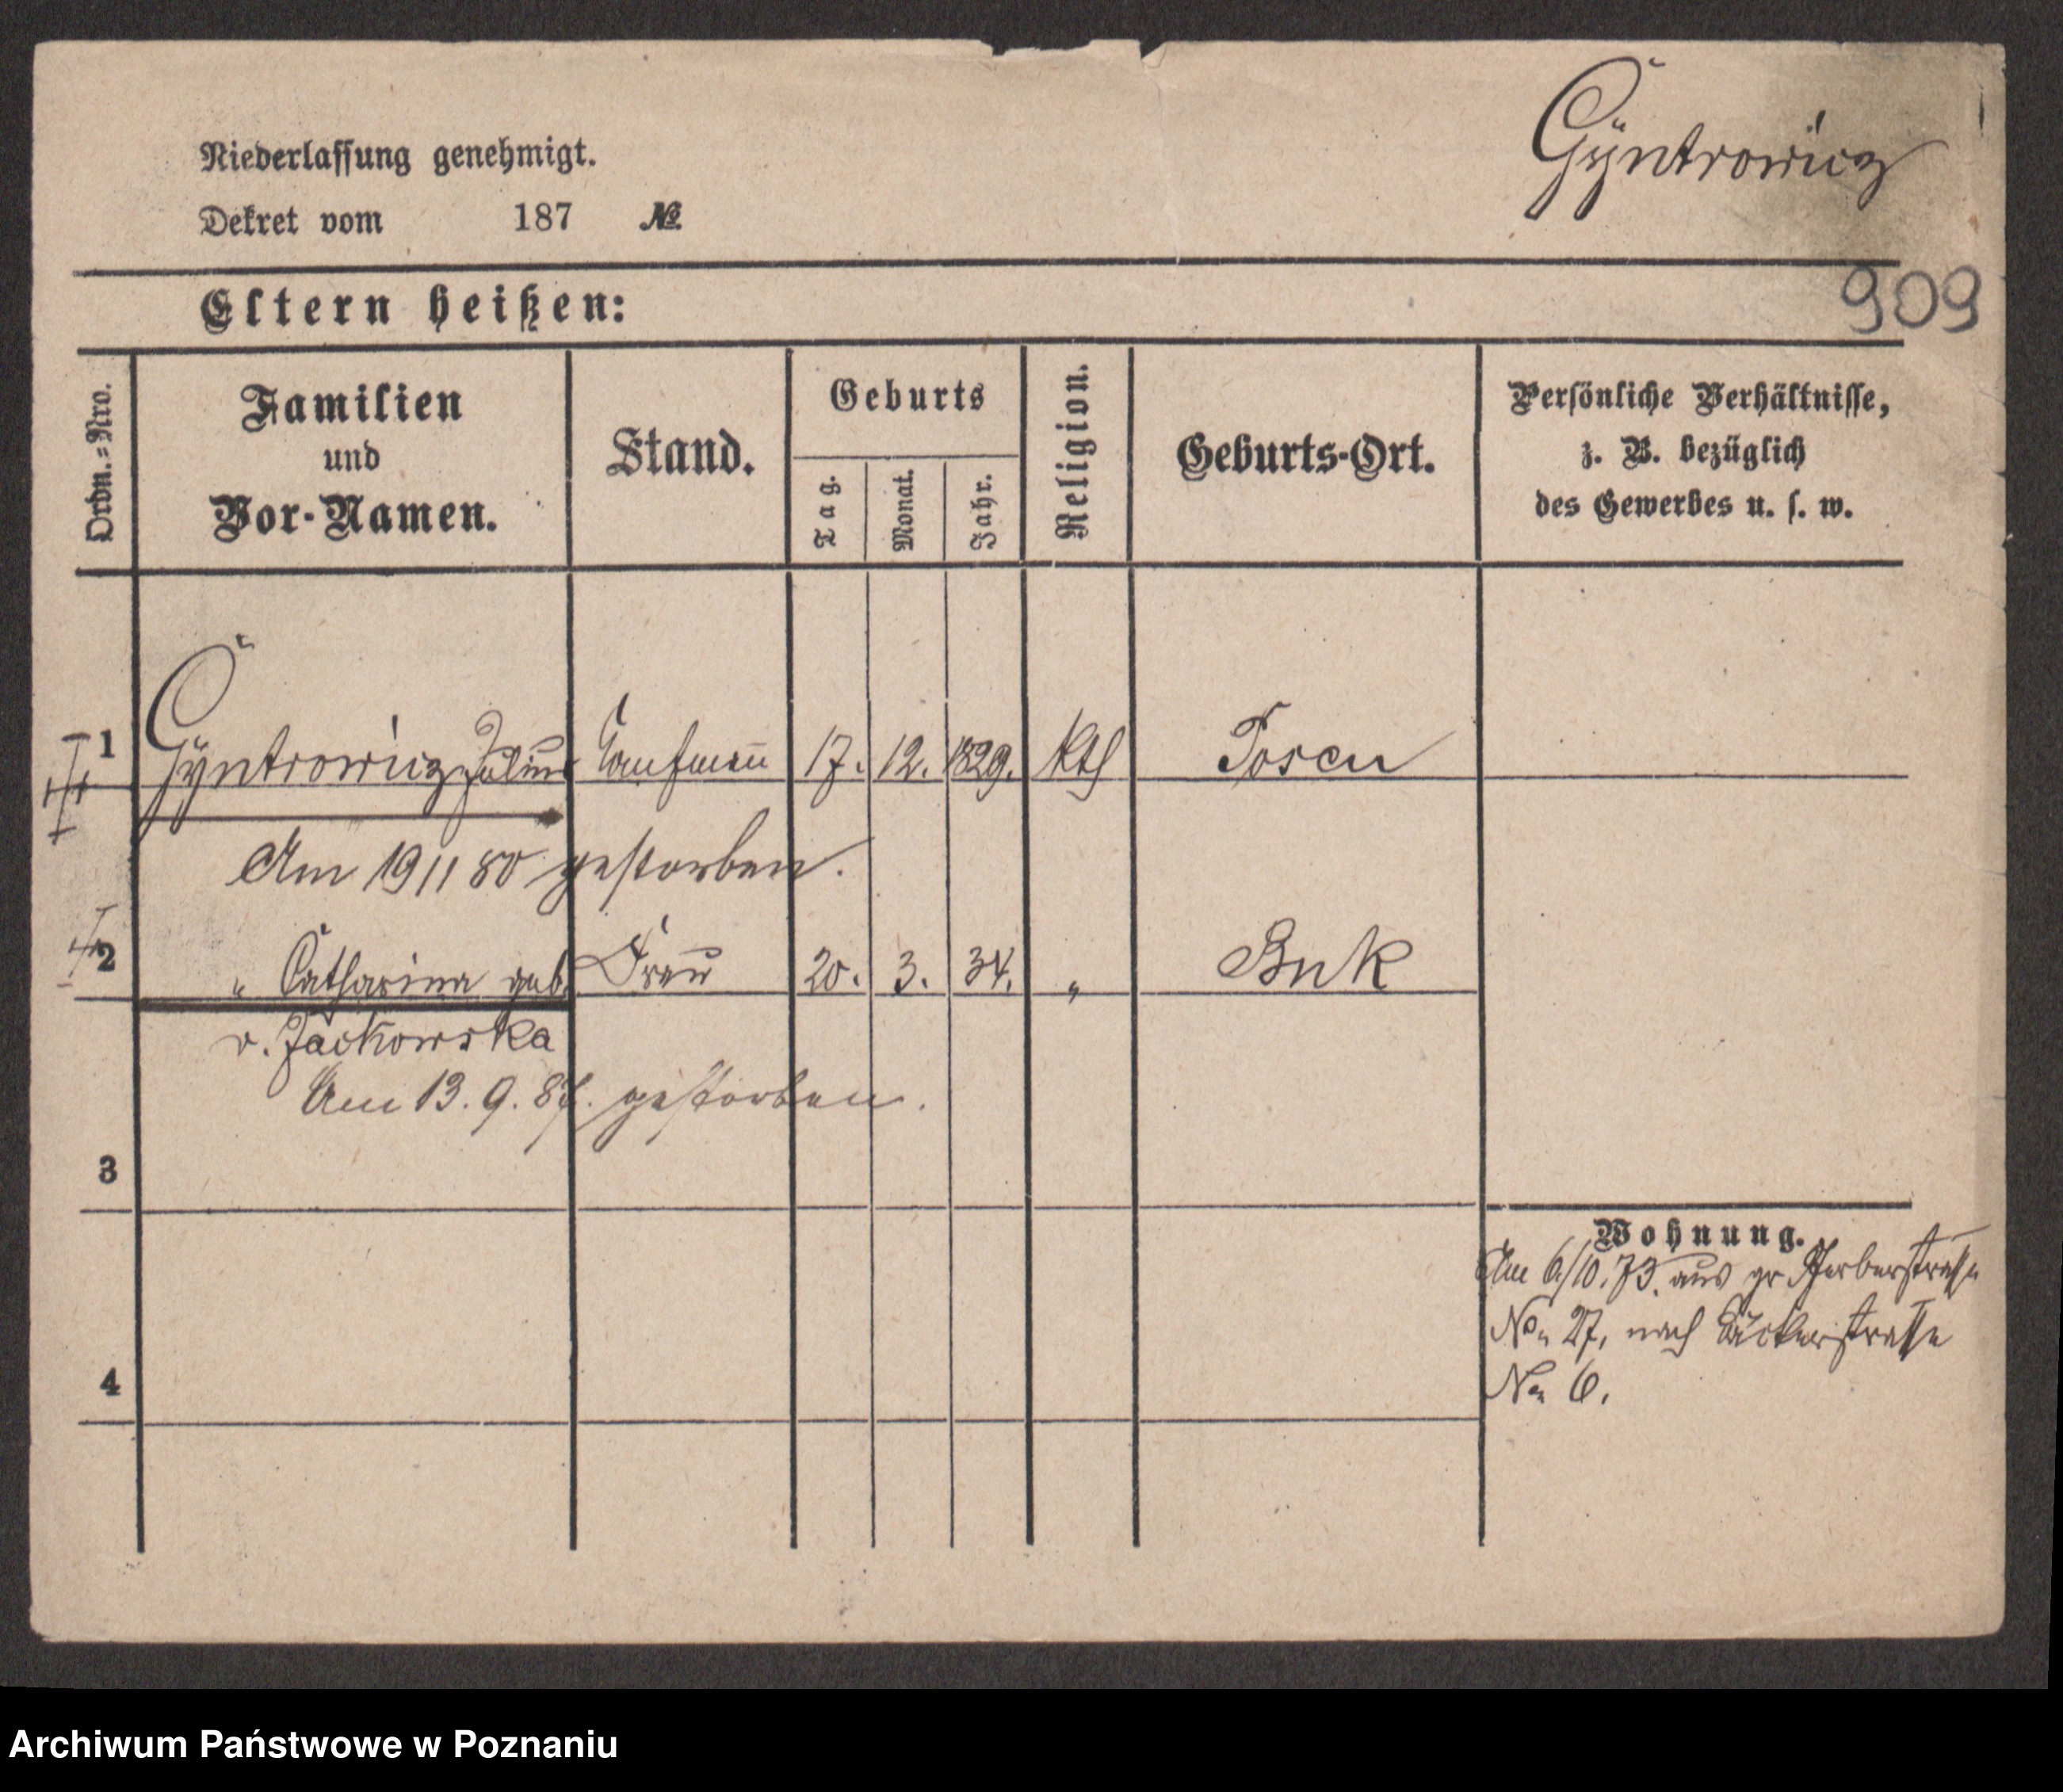 Gÿntrowicz
Niederlassung genehmigt.
Dekret vom 187 №
909
Eltern heißen:
Ordn.=Nro.
Familien
und
Vor-Namen.
Stand.
Geburts
Tag.
Monat.
Jahr.
Religion.
Geburts-Ort.
Persönliche Verhältnisse,
z. B. bezüglich
des Gewerbes u. s. w.
1 Gÿntrowicz Julius Kaufmann 17. 12. 1829. Kth Posen
Am 19 11 80 gestorben.
2 " Catharina geb. Frau 20. 3. 34. " Buk
v. Jackowska
Am 13. 9. 87. gestorben.
3
Wohnung.
Am 6/10.73. aus gr Gerberstraße
No. 27, nach Bäckerstraße
No 6.
4
Archiwum Państwowe w Poznaniu